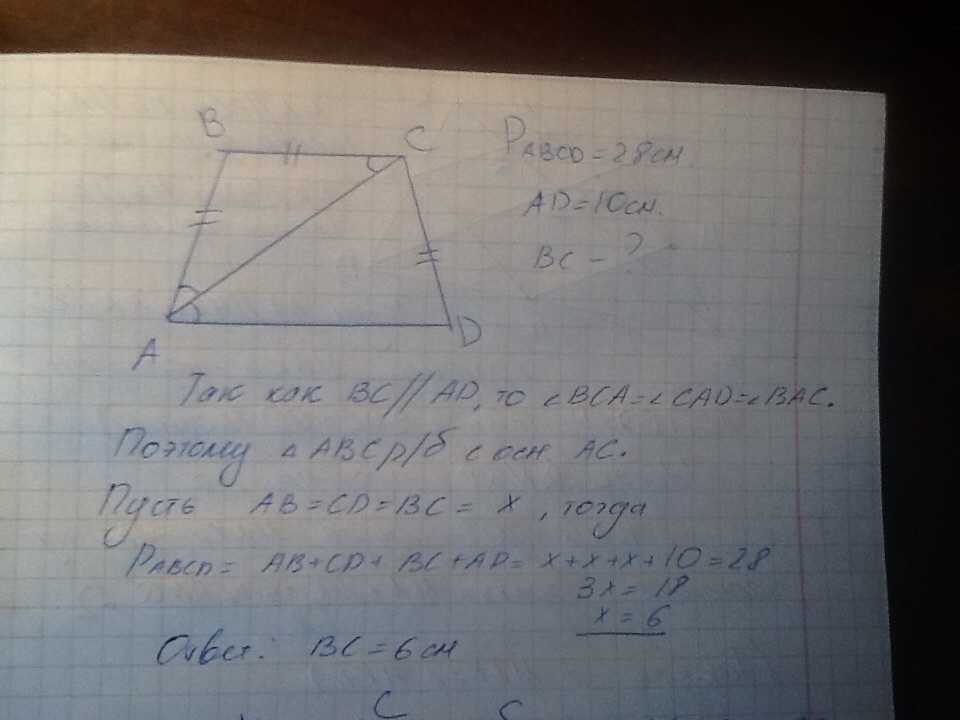 B
C
P ABCD = 28 см
AD = 10 см.
BC - ?
A
D
Так как BC // AD, то ∠BCA = ∠CAD = ∠BAC.
Поэтому △ABC р/б с осн AC.
Пусть AB = CD = BC = x, тогда
P ABCD = AB + CD + BC + AD = x + x + x + 10 = 28
3x = 18
x = 6
Ответ: BC = 6 см
C